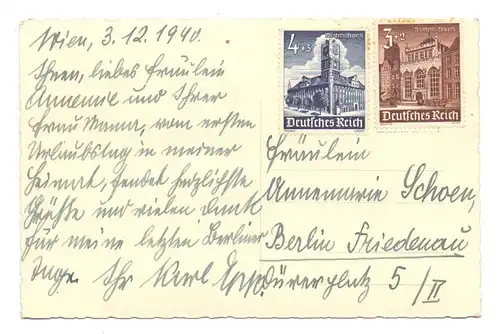 Wien, 3.12.1940.
Ihnen, liebes Fräulein
Annemie und Ihrer
Frau Mama, vom ersten
Urlaubstag in meiner
Heimat, sendet herzlichste
Grüße und vielen Dank
für meine letzten Berliner
Tage. Ihr Karl
4+3
Deutsches Reich
3+2
Deutsches Reich
Fräulein
Annemarie Schoen,
Berlin Friedenau
Dürerplatz 5/II